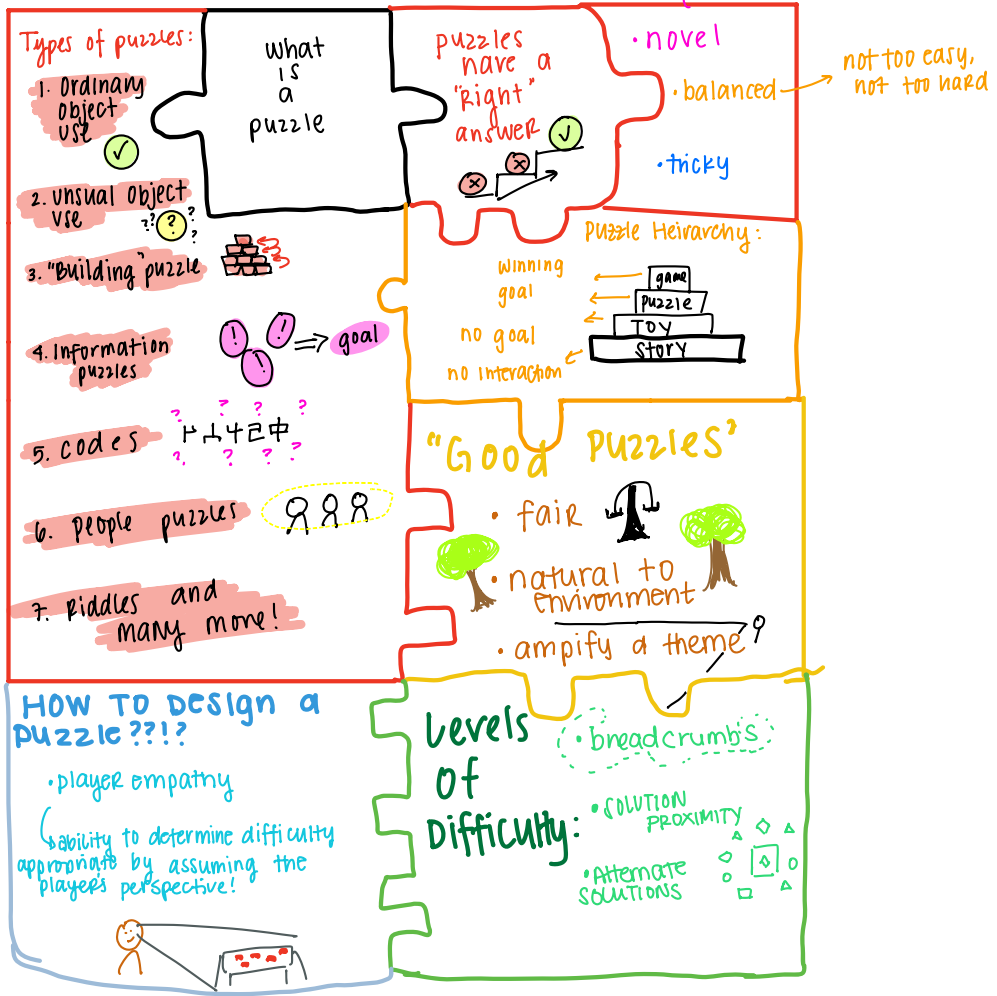 Types of puzzles:
1. Ordinary
object
use
2. unsual object
use
??
?
?
?
3. "Building" puzzle
4. Information
puzzles
!
!
!
goal
5. codes
? ? ? ?
? ? ? ?
6. people puzzles
7. Riddles and
many more!
what
is
a
puzzle
puzzles
have a
"right"
answer
• novel
• balanced
not too easy,
not too hard
• tricky
Puzzle Heirarchy:
winning
goal
no goal
no interaction
game
puzzle
Toy
story
"Good puzzles"
• fair
• natural to
environment
• ampify a theme
HOW TO DESIGN a
puzzle??!?
• player empathy
ability to determine difficulty
appropriate by assuming the
player's perspective!
Levels
of
Difficulty:
• breadcrumbs
• SOLUTION
PROXIMITY
• Alternate
SOLUTIONS